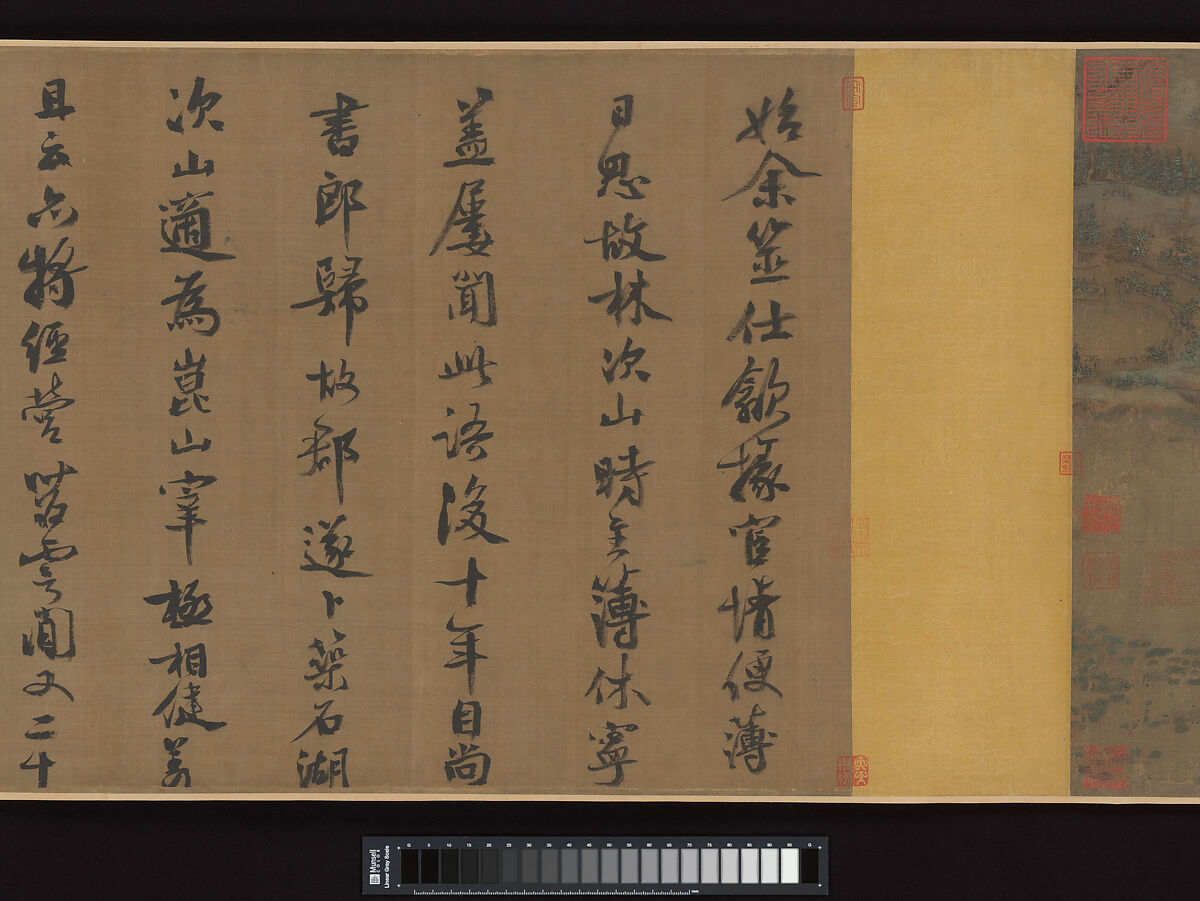 始余筮仕歙掾宦情便薄
日思故林次山時主簿休寧
蓋屢聞此語後十年自尚
書郎歸故郡遂卜築石湖
次山適為崑山宰極相健羨
且云亦將經營苕霅間又二十
Munsell COLOR
Linear Gray Scale
G 5 10 15 20 25 30 35 40 45 50 55 60 65 70 75 80 85 90 95 G
mm